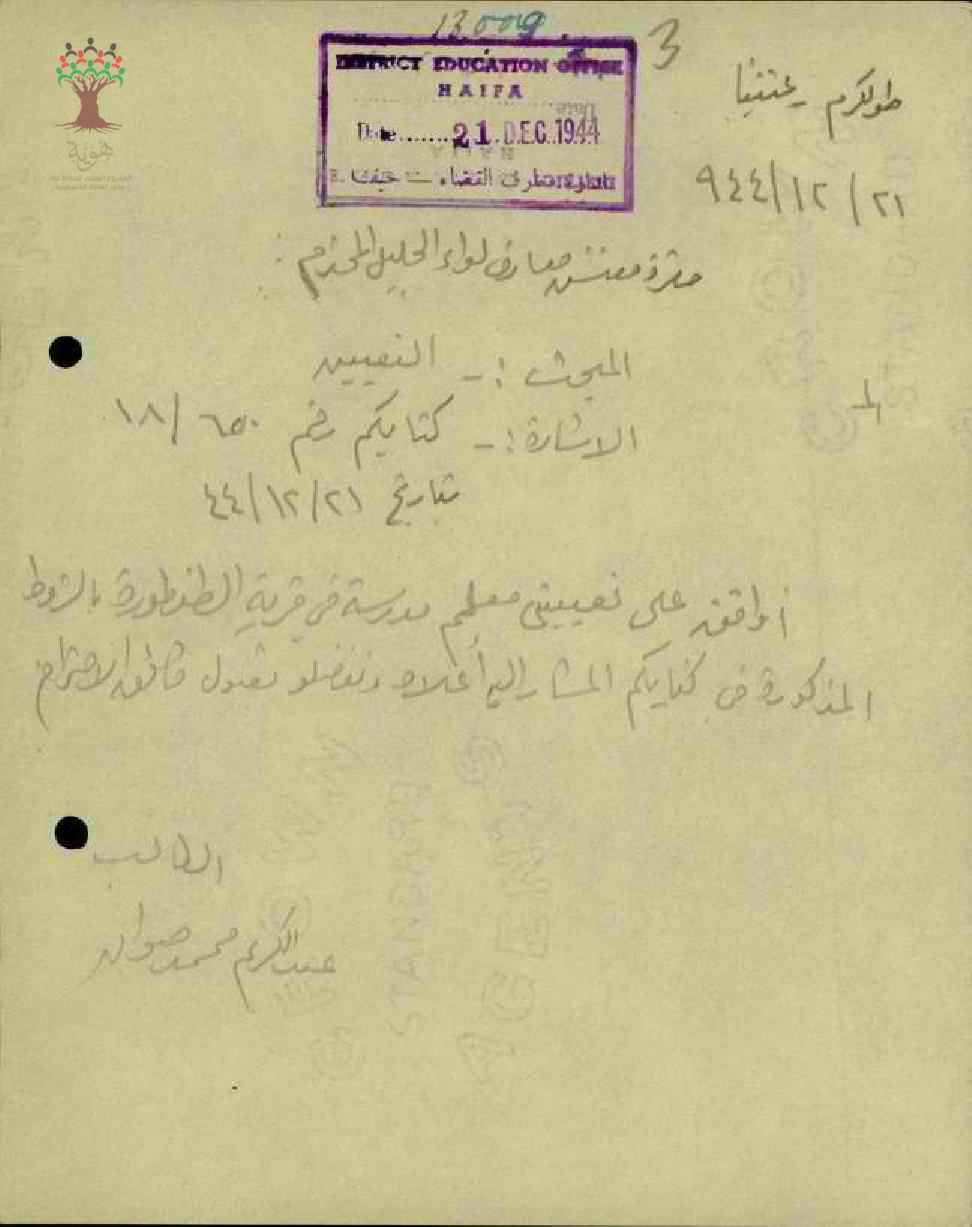 13.009
3
DISTRICT EDUCATION OFFICE
HAIFA
Date........ 21 DEC. 1944
طولكرم - عتيل
٢١ / ١٢ / ٩٤٤
حضرة مفتش معارف لواء الجليل المحترم :
المبحث :- التعيين
الاشارة :- كتابكم رقم ٦٥٠ / ١٨
بتاريخ ٢١ / ١٢ / ٤٤
أوافق على تعييني معلم مدرسة في قرية الطنطورة بالشروط
المذكورة في كتابكم المشار اليه أعلاه وتفضلو بقبول فائق الاحترام
الطالب
عبد الكريم محمد
هوية